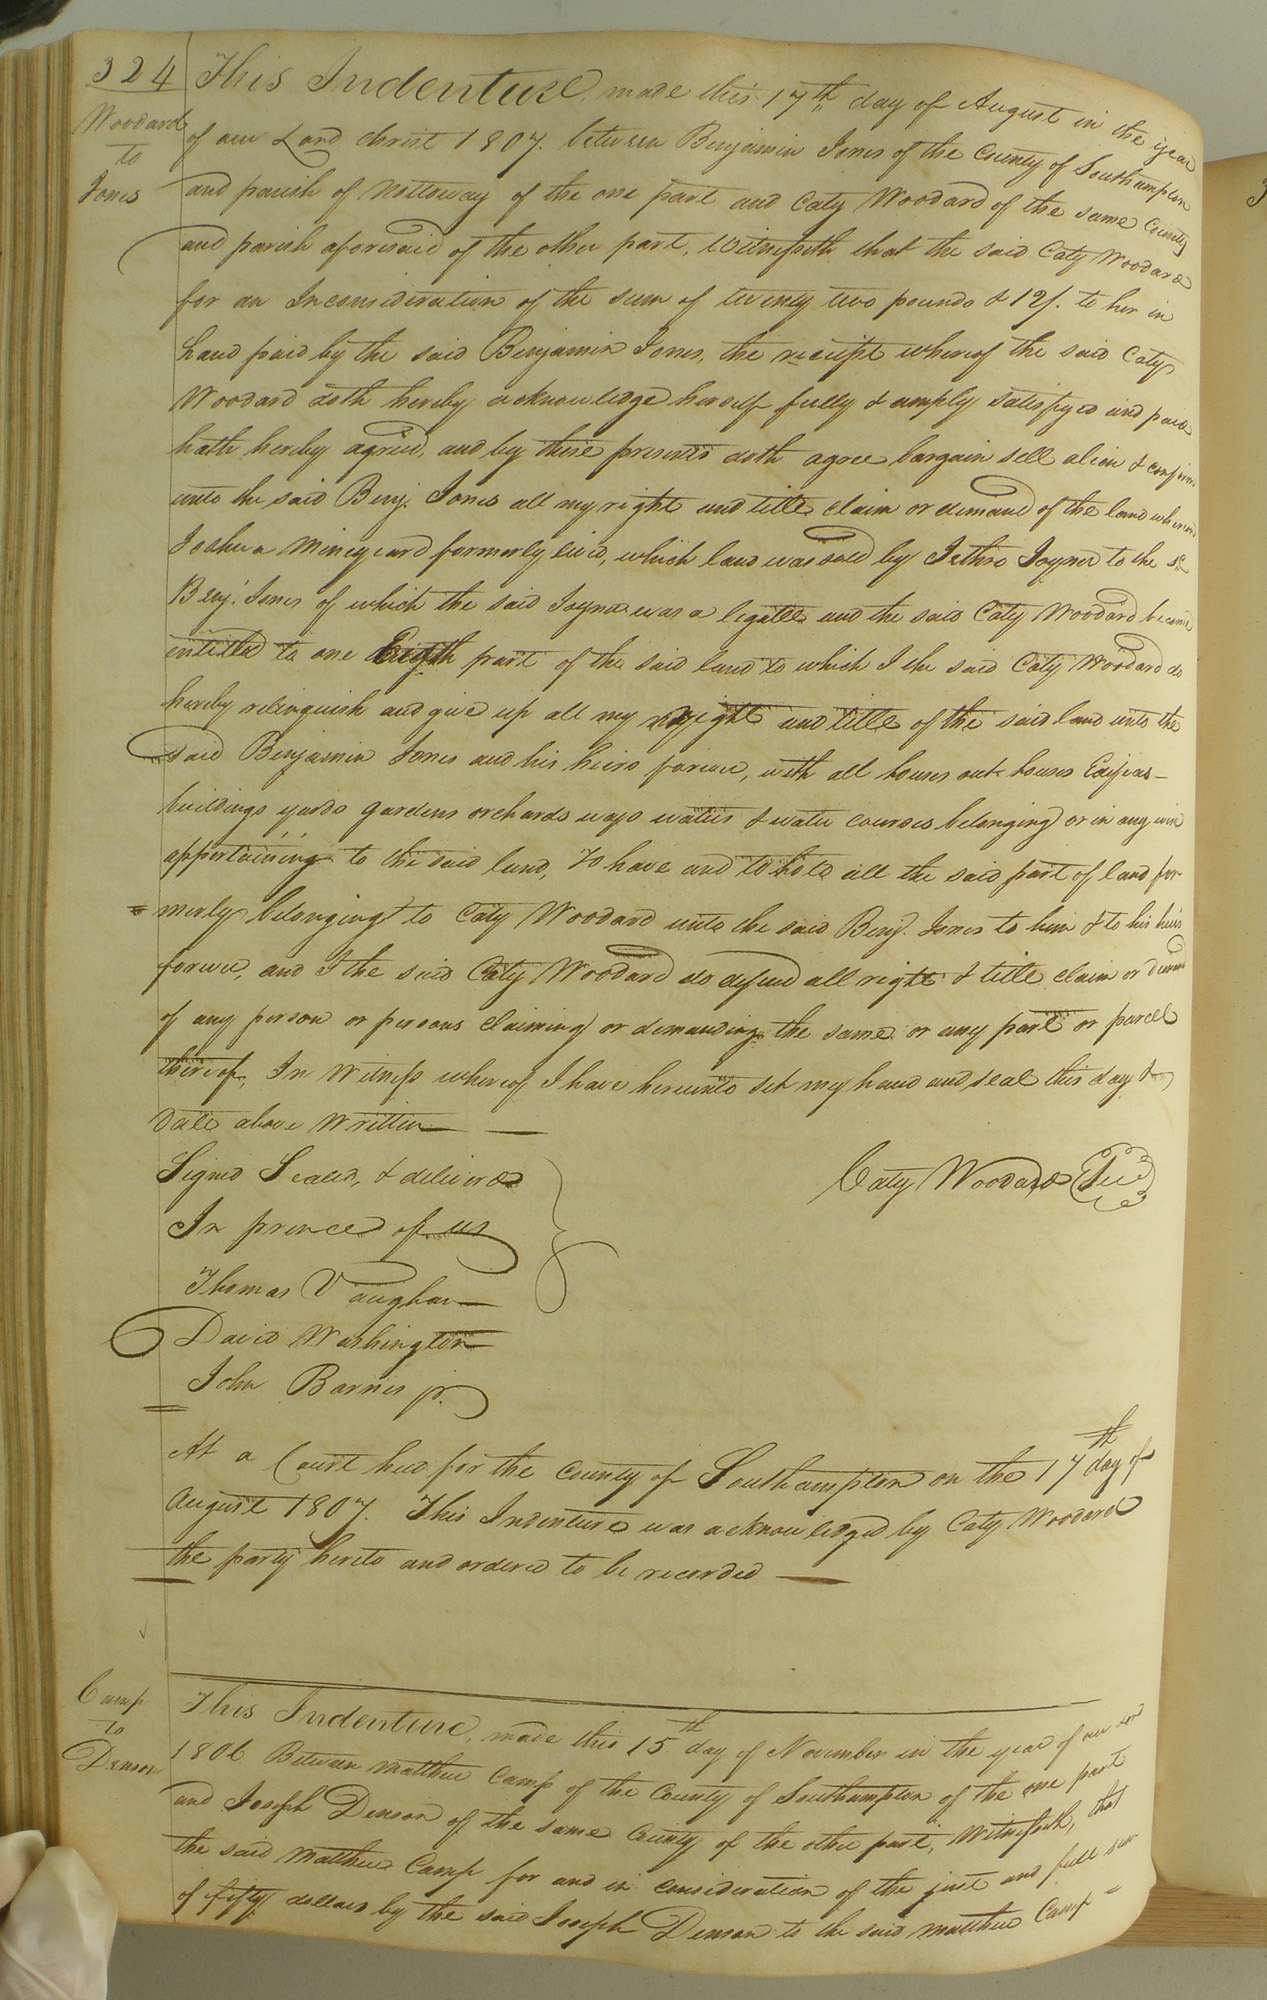 324
Woodard
to
Jones
This Indenture, made this 17th day of August in the year
of our Lord christ 1807. between Benjamin Jones of the County of Southampton
and parish of Nottoway of the one part and Caty Woodard of the same County
and parish aforesaid of the other part, Witnesseth that the said Caty Woodard
for an Inconsideration of the sum of twenty two pounds & 12/. to her in
hand paid by the said Benjamin Jones, the receipt whereof the said Caty
Woodard doth hereby acknowledge herself fully & amply satisfyed and paid
hath hereby agreed, and by these presents doth agree bargain sell alien & confirm
unto the said Benj. Jones all my right and title claim or demand of the land whereon
Joshua Mineyard formerly lived, which land was sold by Jethro Joyner to the sd.
Benj. Jones of which the said Joyner was a legatee and the said Caty Woodard became
entitled to one Eighth part of the said land to which I the said Caty Woodard do
hereby relinquish and give up all my right and title of the said land unto the
said Benjamin Jones and his heirs forever, with all houses out houses
buildings yards gardens orchards ways waters & water courses belonging or in any wise
appertaining to the said land, To have and to hold all the said part of land for
=merly belonging to Caty Woodard unto the said Benj. Jones to him & to his heirs
forever, and I the said Caty Woodard do defend all right & title claim or demand
of any person or persons claiming or demanding the same or any part or parcel
thereof, In Witness whereof I have hereunto set my hand and seal this day &
Date above Written
Signed Sealed, & delivered
Caty Woodard Seal
In prence of us
Thomas Vaughan
David Washington
John Barnes jr.
At a Court held for the County of Southampton on the 17th day of
August 1807. This Indenture was acknowledged by Caty Woodard
the party hereto and ordered to be recorded
Camp
to
Denson
This Indenture, made this 15th day of November in the year of our Lord
1806 Between Matthew Camp of the County of Southampton of the one part
and Joseph Denson of the same County of the other part, Witnesseth, that
the said Matthew Camp for and in consideration of the just and full sum
of fifty dollars by the said Joseph Denson to the said Matthew Camp